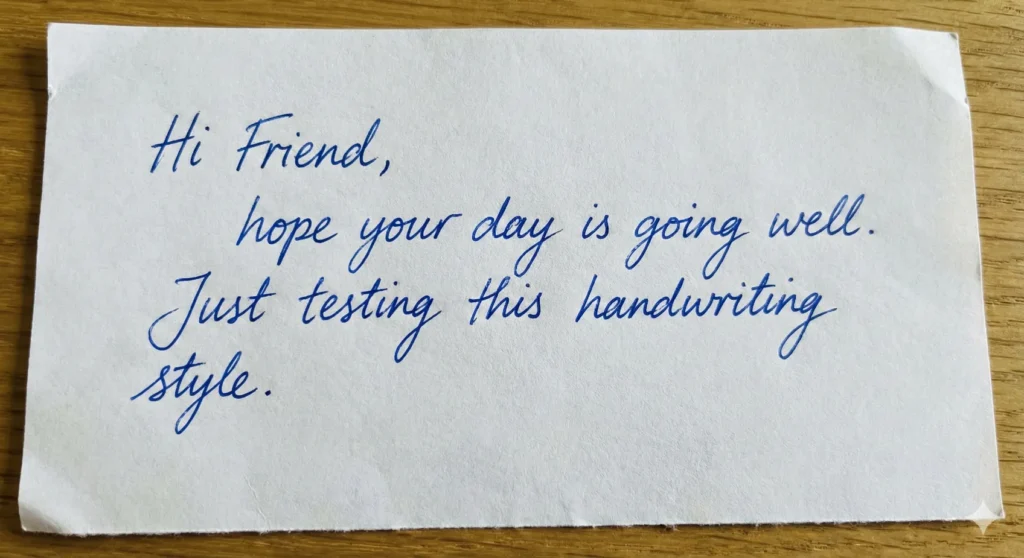 Hi Friend,
hope your day is going well.
Just testing this handwriting
style.